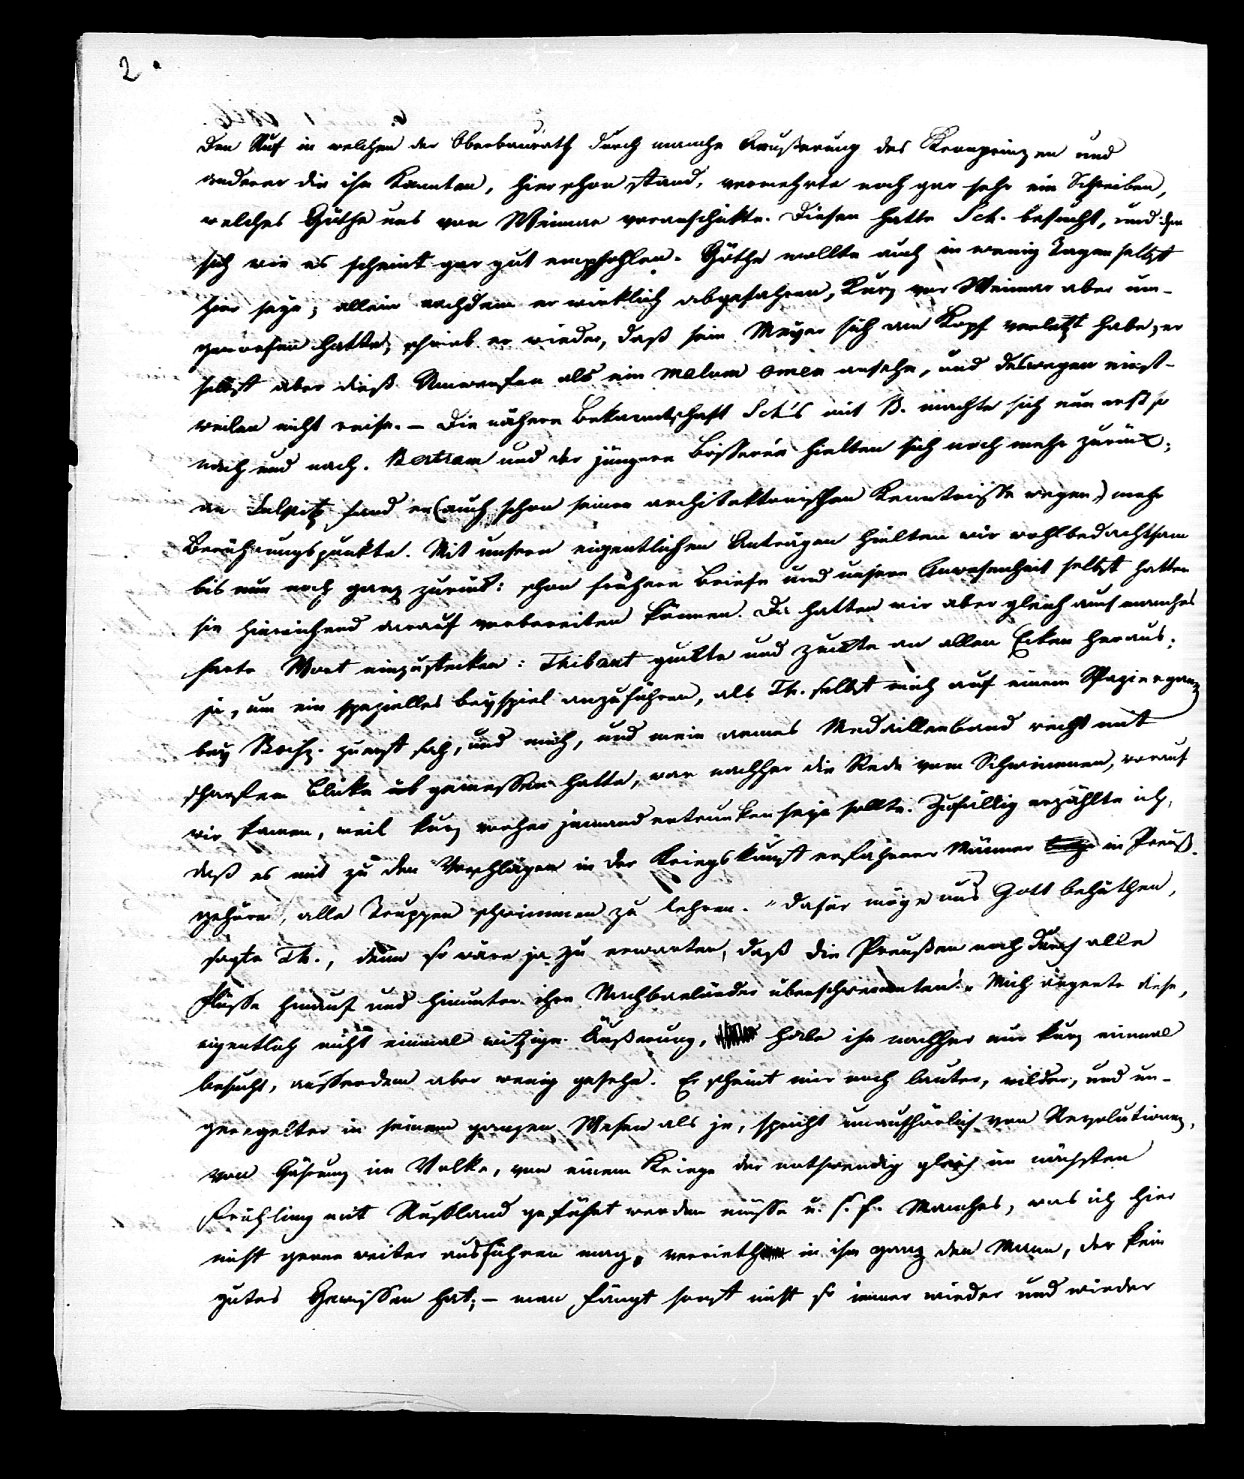 2.
Den Ruf in welchem der Oberbaurath durch manche Aeußerung des Kronprinzen und
anderer die ihn kannten, hier schon stand, vermehrte noch gar sehr ein Schreiben,
welches Göthe uns von Weimar voranschikte. Diesen hatte Sch. besucht, und ihm
sich wie es scheint gar gut empfohlen. Göthe wollte auch in wenig Tagen selbst
hier seyn; allein nachdem er wirklich abgefahren, kurz vor Weimar aber um-
geworfen hatte, schrieb er wieder, daß sein Meyer sich am Kopf verletzt habe, er
selbst aber dieß Umwerfen als ein malum omen ansehe, und deswegen einst-
weilen nicht reise. – Die nähere Bekanntschaft Sch's mit B. machte sich nun erst so
nach und nach. Bertram und der jüngere Boisserée hielten sich noch mehr zurück;
an Sulpitz fand er (auch schon seiner architektonischen Kenntnisse wegen) mehr
Berührungspunkte. Mit unsern eigentlichen Anträgen hielten wir wohlbedachtsam
bis nun noch ganz zurück: schon frühere Briefe und unsere Anwesenheit selbst hatten
sie hinreichend darauf vorbereiten können. Da hatten wir aber gleich auch manches
harte Wort einzustecken: Thibaut guckte und zuckte an allen Ecken heraus;
ja, um ein spezielles Beyspiel anzuführen, als Th. selbst mich auf einem Spaziergang
bey zuerst sah, und mich, und mein armes Medaillenband recht mit
scharfem Blicke gemessen hatte, war nachher die Rede vom Schwimmen, worauf
wir kamen, weil kurz vorher jemand ertrunken seyn sollte. Zufällig erzählte ich,
daß es mit zu den Vorschlägen in der Kriegskunst erfahrener Männer in Preuß.
gehöre, alle Truppen schwimmen zu lehren. "Dafür möge uns Gott behüthen,
sagte Th., denn so wäre ja zu erwarten, daß die Preußen noch durch alle
Flüsse hinauf und hinunter ihre Nachbarländer überschwemmten!" Mich ärgerte diese,
eigentlich nicht einmal witzige Äußerung, habe ihn nachher nur kurz einmal
besucht, ausserdem aber wenig gesehn. Er scheint mir noch lauter, wilder, und un-
geregelter in seinem ganzen Wesen als je, spricht unaufhörlich von Revolutionen,
von Gährung im Volke, von einem Kriege der nothwendig gleich im nächsten
Frühling mit Rußland geführt werden müsse u. s. f. Manches, was ich hier
nicht gerne weiter ausführen mag, verrieth in ihm ganz den Mann, der kein
gutes Gewissen hat; – man fängt sonst nicht so immer wieder und wieder